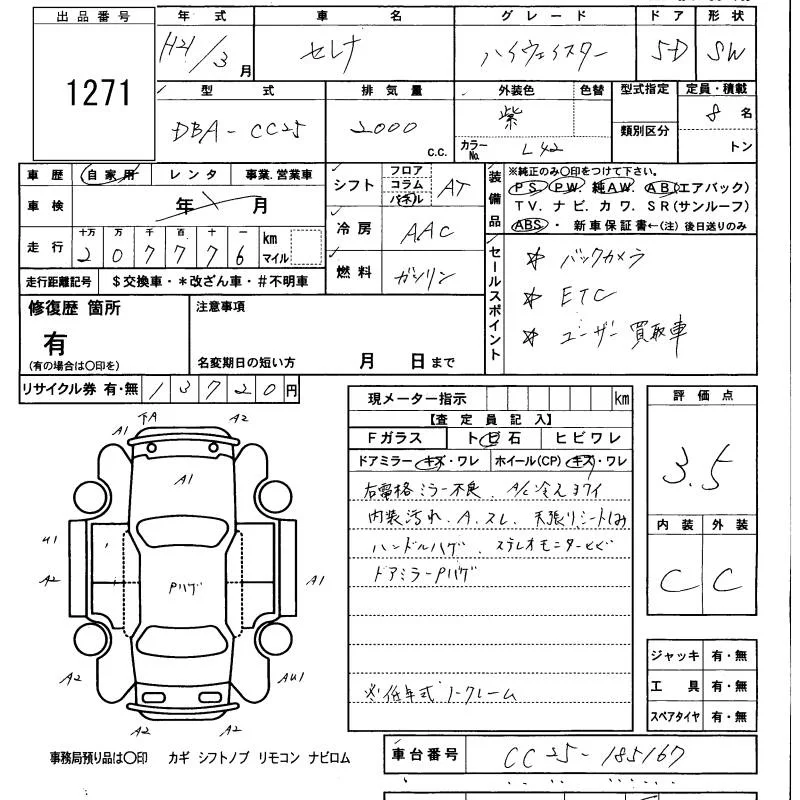 出品番号 年式 車名 グレード ドア 形状
1271 H21/3月 セレナ ハイウェイスター 5D SW
型式 排気量 外装色 色替 型式指定 定員・積載
DBA-CC25 2000 c.c. 紫 カラーNo. L42 類別区分 8名 トン
車歴 自家用 レンタ 事業.営業車
車検 年 月
走行 十万 万 千 百 十 一 km マイル
2 0 7 7 7 6
走行距離記号 $交換車・*改ざん車・#不明車
シフト フロア コラム パネル AT
冷房 AAC
燃料 ガソリン
装備品 ※純正のみ〇印をつけて下さい。
PS PW 純AW AB(エアバック)
TV. ナビ. カワ. SR(サンルーフ)
ABS・ 新車保証書←(注) 後日送りのみ
セールスポイント
☆ バックカメラ
☆ ETC
☆ ユーザー買取車
修復歴 箇所 有 (有の場合は〇印を)
注意事項
名変期日の短い方 月 日まで
リサイクル券 有・無 13720円
現メーター指示 km
【査定員記入】
Fガラス トビ石 ヒビワレ
ドアミラー キズ・ワレ ホイール(CP) キズ・ワレ
右電格ミラー不良. A/C冷えヨワイ
内装汚れ. A.スレ. 天張りシートしみ
ハンドルハゲ. ステレオモニターヒビ
ドアミラーPハゲ
※低年式ノークレーム
評価点
3.5
内装 外装
C C
ジャッキ 有・無
工具 有・無
スペアタイヤ 有・無
下A A2
A1
A1
U1
A2
Pハゲ
A1
A2 AU1
A2 A2
事務局預り品は〇印 カギ シフトノブ リモコン ナビロム
車台番号 CC25-185167